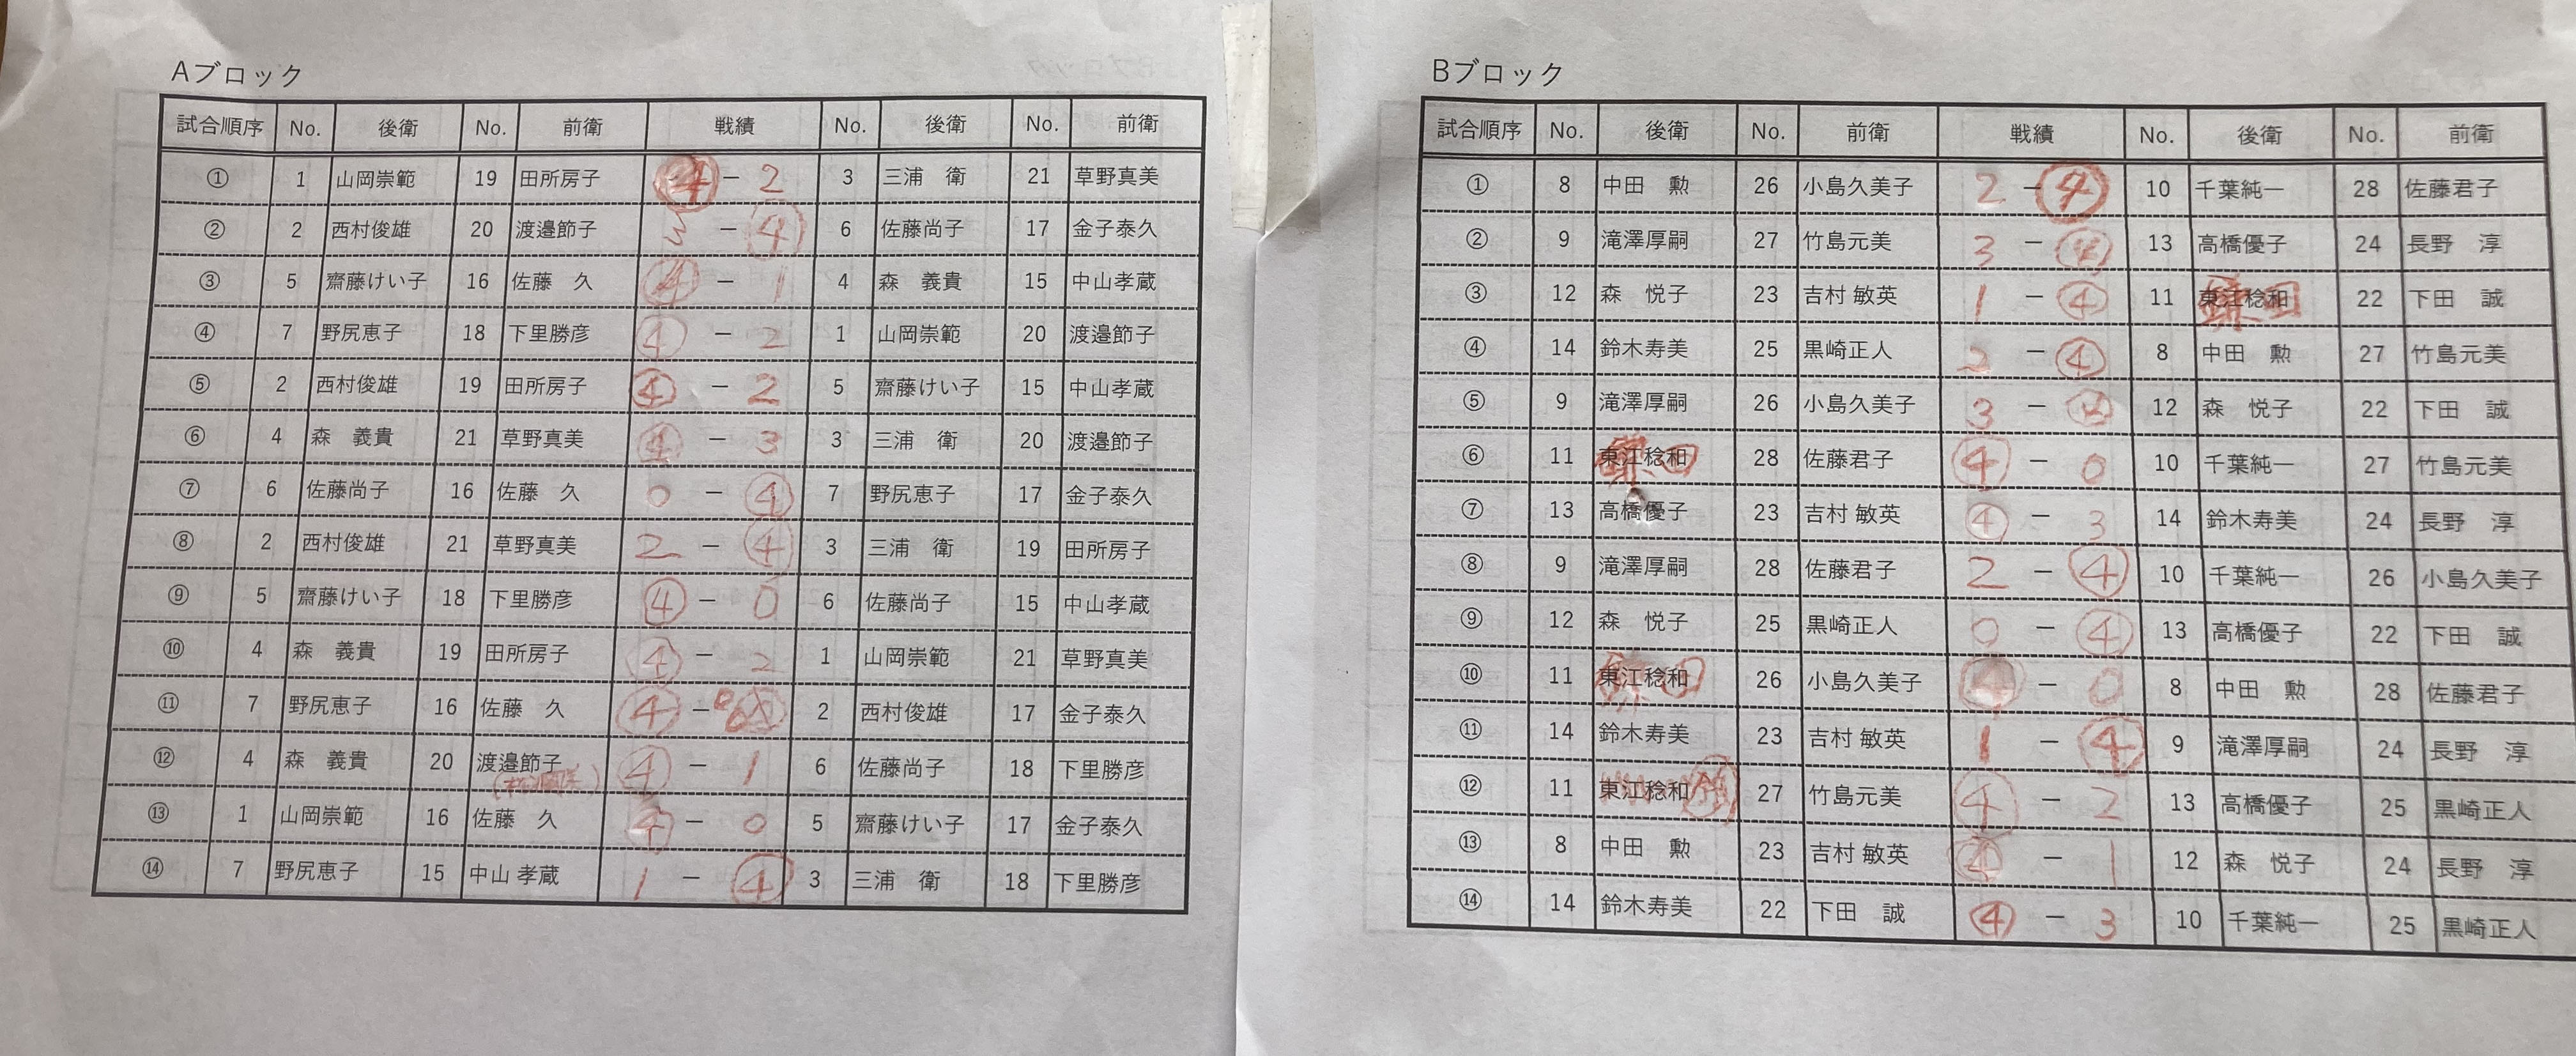 Aブロック
試合順序 No. 後衛 No. 前衛 戦績 No. 後衛 No. 前衛
① 1 山岡崇範 19 田所房子 ④ − 2 3 三浦 衛 21 草野真美
② 2 西村俊雄 20 渡邉節子 3 − ④ 6 佐藤尚子 17 金子泰久
③ 5 齋藤けい子 16 佐藤 久 ④ − 1 4 森 義貴 15 中山孝蔵
④ 7 野尻恵子 18 下里勝彦 ④ − 2 1 山岡崇範 20 渡邉節子
⑤ 2 西村俊雄 19 田所房子 ④ − 2 5 齋藤けい子 15 中山孝蔵
⑥ 4 森 義貴 21 草野真美 ④ − 3 3 三浦 衛 20 渡邉節子
⑦ 6 佐藤尚子 16 佐藤 久 0 − ④ 7 野尻恵子 17 金子泰久
⑧ 2 西村俊雄 21 草野真美 2 − ④ 3 三浦 衛 19 田所房子
⑨ 5 齋藤けい子 18 下里勝彦 ④ − 0 6 佐藤尚子 15 中山孝蔵
⑩ 4 森 義貴 19 田所房子 ④ − 2 1 山岡崇範 21 草野真美
⑪ 7 野尻恵子 16 佐藤 久 ④ − 2 西村俊雄 17 金子泰久
⑫ 4 森 義貴 20 渡邉節子 ④ − 1 6 佐藤尚子 18 下里勝彦
⑬ 1 山岡崇範 16 佐藤 久 ④ − 0 5 齋藤けい子 17 金子泰久
⑭ 7 野尻恵子 15 中山 孝蔵 1 − ④ 3 三浦 衛 18 下里勝彦
Bブロック
試合順序 No. 後衛 No. 前衛 戦績 No. 後衛 No. 前衛
① 8 中田 勲 26 小島久美子 2 − ④ 10 千葉純一 28 佐藤君子
② 9 滝澤厚嗣 27 竹島元美 3 − ④ 13 高橋優子 24 長野 淳
③ 12 森 悦子 23 吉村 敏英 1 − ④ 11 東江稔和 22 下田 誠
④ 14 鈴木寿美 25 黒崎正人 2 − ④ 8 中田 勲 27 竹島元美
⑤ 9 滝澤厚嗣 26 小島久美子 3 − ④ 12 森 悦子 22 下田 誠
⑥ 11 東江稔和 28 佐藤君子 ④ − 0 10 千葉純一 27 竹島元美
⑦ 13 高橋優子 23 吉村 敏英 ④ − 3 14 鈴木寿美 24 長野 淳
⑧ 9 滝澤厚嗣 28 佐藤君子 2 − ④ 10 千葉純一 26 小島久美子
⑨ 12 森 悦子 25 黒崎正人 0 − ④ 13 高橋優子 22 下田 誠
⑩ 11 東江稔和 26 小島久美子 ④ − 0 8 中田 勲 28 佐藤君子
⑪ 14 鈴木寿美 23 吉村 敏英 1 − ④ 9 滝澤厚嗣 24 長野 淳
⑫ 11 東江稔和 27 竹島元美 ④ − 2 13 高橋優子 25 黒崎正人
⑬ 8 中田 勲 23 吉村 敏英 ④ − 1 12 森 悦子 24 長野 淳
⑭ 14 鈴木寿美 22 下田 誠 ④ − 3 10 千葉純一 25 黒崎正人